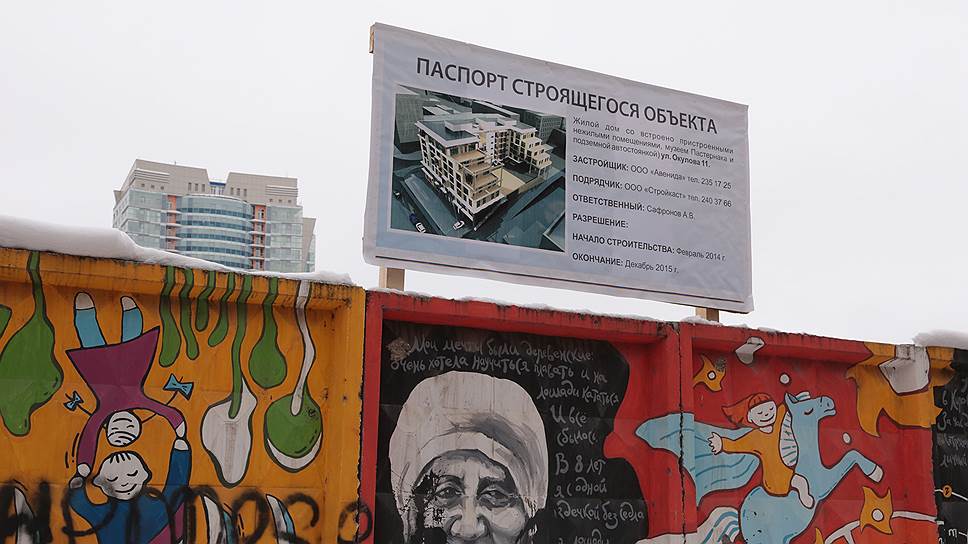 ПАСПОРТ СТРОЯЩЕГОСЯ ОБЪЕКТА
Жилой дом со встроено пристроенными
нежилыми помещениями, музеем Пастернака и
подземной автостоянкой) ул. Окулова 11.
ЗАСТРОЙЩИК: ООО «Авенида» тел. 235 17 25
ПОДРЯДЧИК: ООО «Стройкаст» тел. 240 37 66
ОТВЕТСТВЕННЫЙ: Сафронов А.В.
РАЗРЕШЕНИЕ:
НАЧАЛО СТРОИТЕЛЬСТВА: Февраль 2014 г.
ОКОНЧАНИЕ: Декабрь 2015 г.
Мои мечты были деревенские:
очень хотела научиться плавать и на
лошади кататься
И все
сбылось
В 8 лет
я с одной
уздечкой без седла